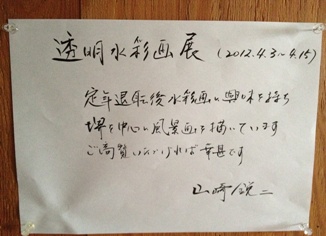 透明水彩画展 (2012.4.3〜4.15)
定年退職後水彩画に興味を持ち
堺を中心に風景画を描いています
ご高覧いただければ幸甚です
山崎 二